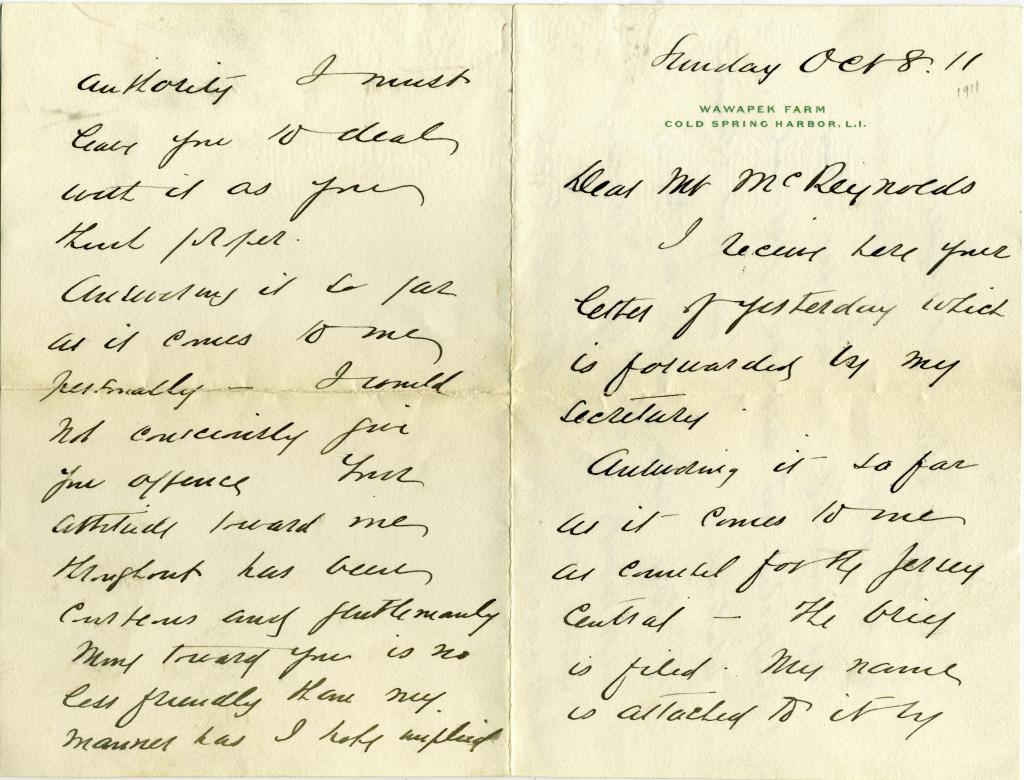 Sunday Oct 8. 11
1911
WAWAPEK FARM
COLD SPRING HARBOR, L.I.
Dear Mr McReynolds
I receive here your
letter of yesterday which
is forwarded by my
secretary.
Answering it so far
as it comes to me
as counsel for the Jersey
Central – The brief
is filed. My name
is attached to it by
authority I must
leave you to deal
with it as you
think proper.
Answering it so far
as it comes to me
personally – I would
not consciously give
you offence Your
attitude toward me
throughout has been
courteous and gentlemanly
Mine toward you is no
less friendly than my
manner has I hope implied